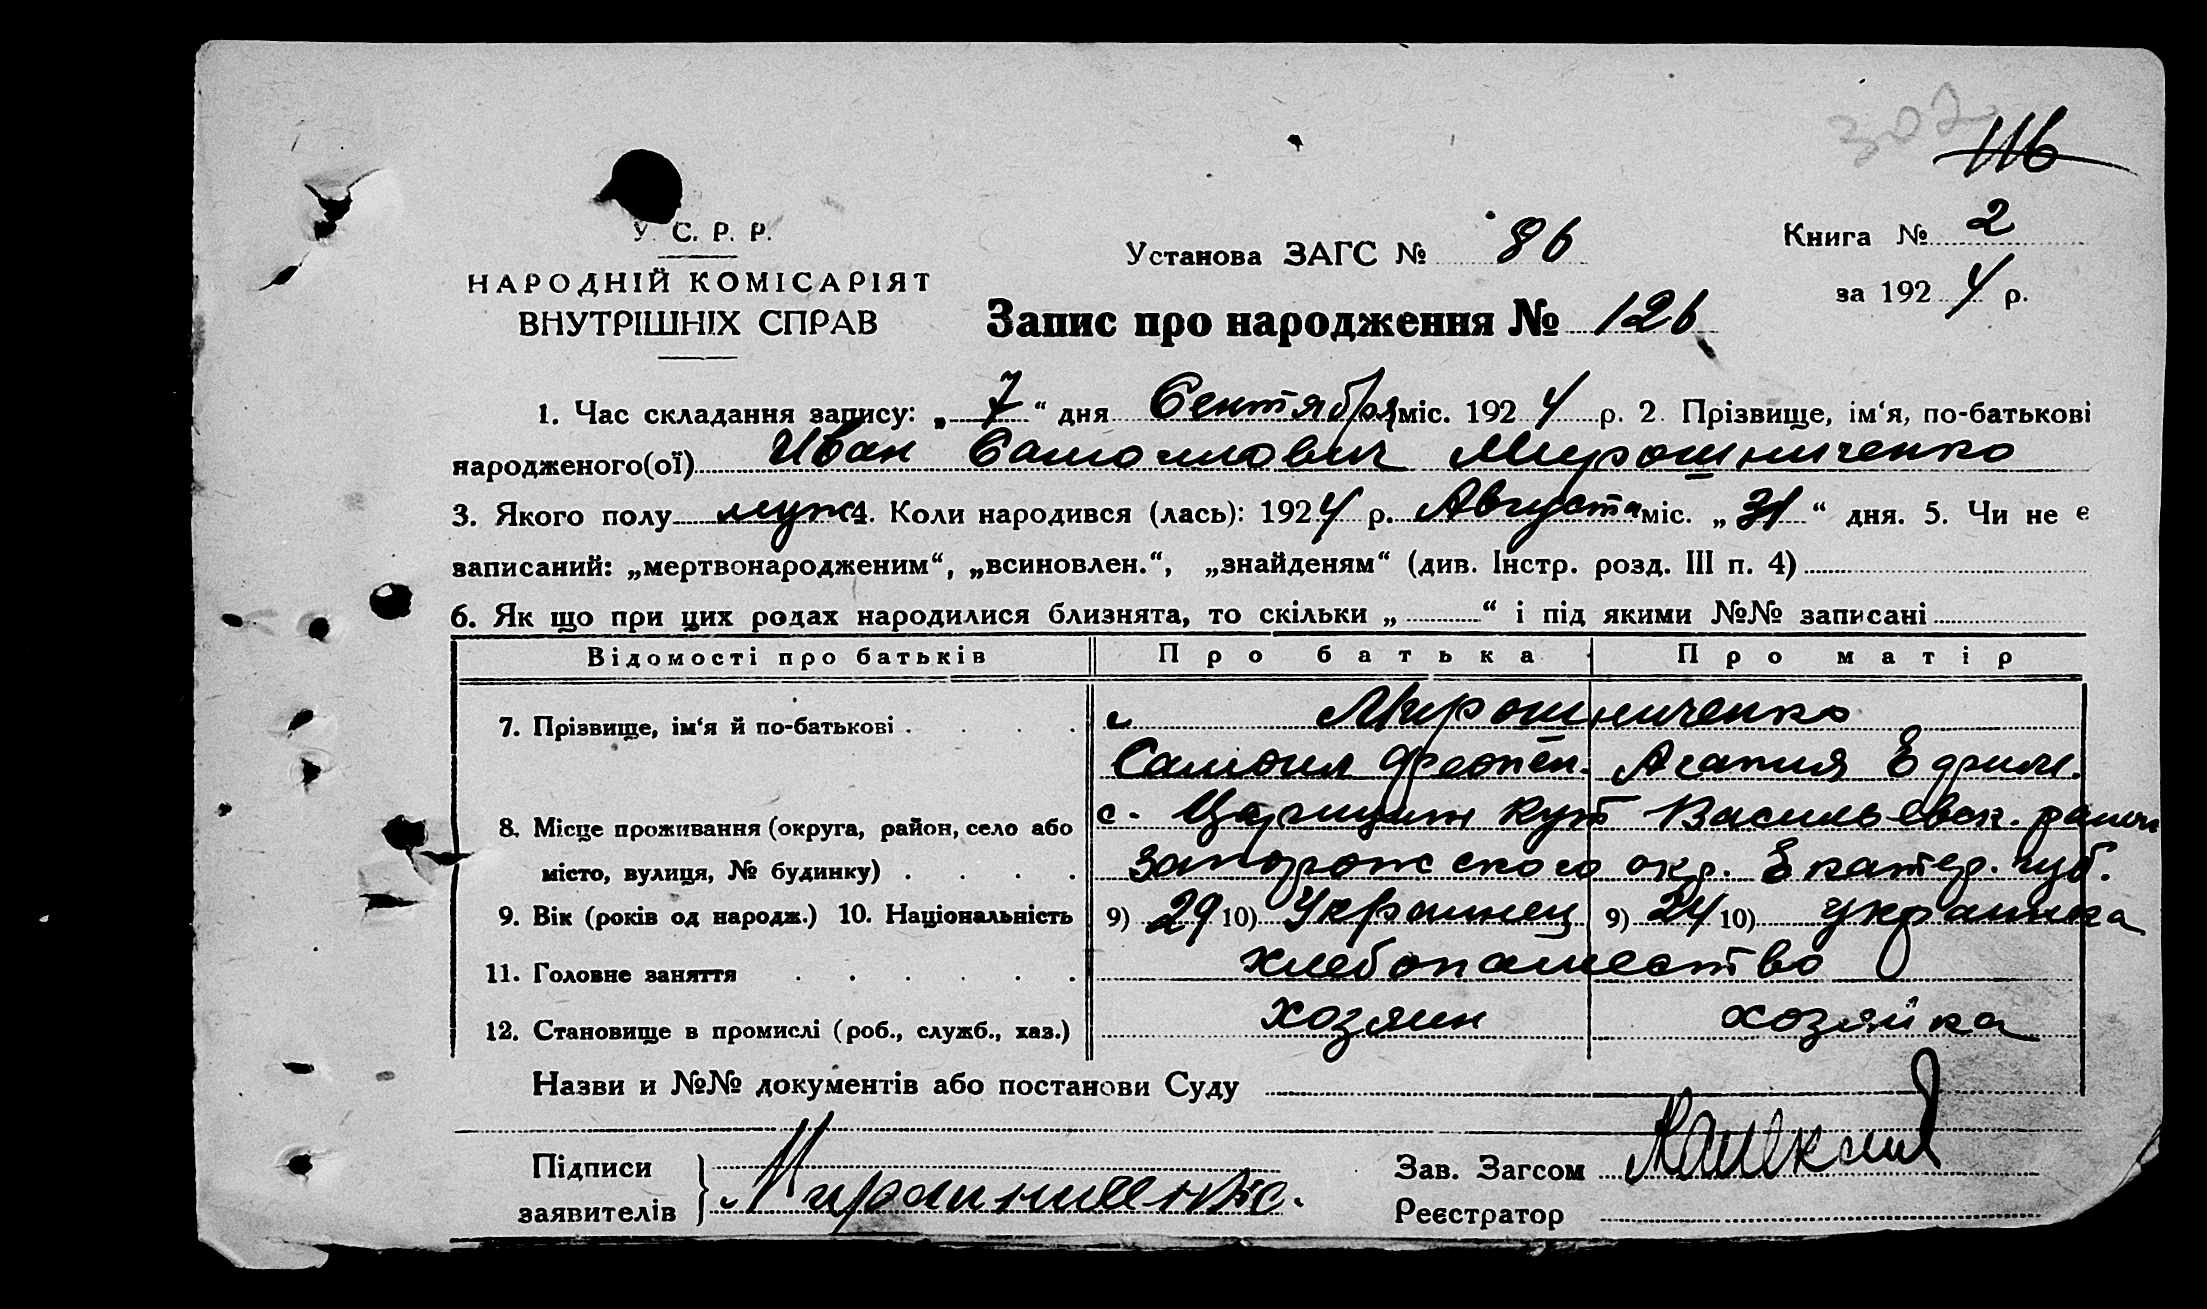 302
116
У. С. Р. Р.
НАРОДНІЙ КОМІСАРІЯТ
ВНУТРІШНІХ СПРАВ
Установа ЗАГС № 86
Книга № 2
за 1924 р.
Запис про народження № 126
1. Час складання запису: „7“ дня Сентября міс. 1924 р. 2. Прізвище, ім‘я, по-батькові
народженого(ої) Иван Самоилович Мирошниченко
3. Якого полу муж 4. Коли народився (лась): 1924 р. Августа міс. „31“ дня. 5. Чи не є
записаний: „мертвонародженим“, „всиновлен.“, „знайденям“ (див. Інстр. розд. III п. 4)
6. Як що при цих родах народилися близнята, то скільки „ “ і під якими №№ записані
Відомості про батьків Про батька Про матір
7. Прізвище, ім‘я й по-батькові Мирошниченко
Самоил Агапия
8. Місце проживання (округа, район, село або с. Царицын Кут Васильевск. район
місто, вулиця, № будинку) Запорожского окр. Екатер. губ.
9. Вік (років од народж.) 10. Національність 9) 29 10) Украинец 9) 24 10) Украинка
11. Головне заняття хлебопашество
12. Становище в промислі (роб., служб., хаз.) хозяин хозяйка
Назви и №№ документів або постанови Суду
Підписи
заявителів Мирошниченко.
Зав. Загсом
Реєстратор